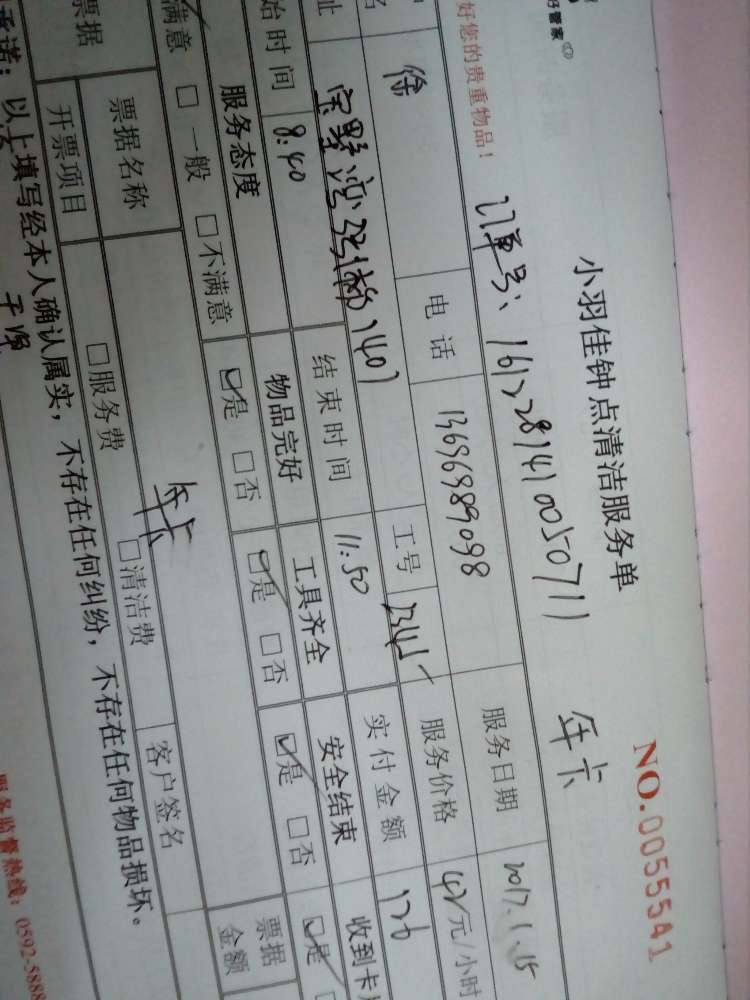 好管家
小羽佳钟点清洁服务单
NO.0055541
好您的贵重物品！
订单号：161228141005071 1
年卡
名
徐
电话
13696989098
服务日期
2017.1.15
址
407
工号
服务价格
42元/小时
始时间
8:40
结束时间
11:50
实付金额
126
服务态度
物品完好
工具齐全
安全结束
收到卡
满意 □一般 □不满意
☑是 □否
☑是 □否
☑是 □否
☑是
票据
票据名称
年卡
票据
金额
开票项目
□服务费
□清洁费
客户签名
承诺：以上填写经本人确认属实，不存在任何纠纷，不存在任何物品损坏。
干净
服务监督热线：0592-5888